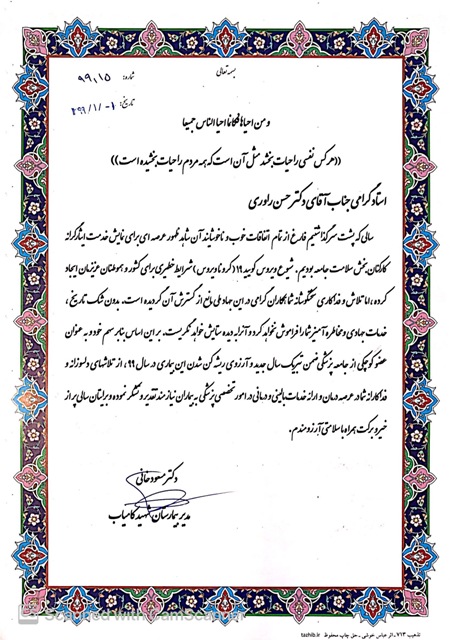 بسمه تعالی
شماره: ۹۹٫۱۵
تاریخ: ۹۹/۱/
و من احیاها فکانما احیا الناس جمیعا
((هر کس نفسی را حیات بخشد مثل آن است که همه مردم را حیات بخشیده است))
استاد گرامی جناب آقای دکتر حسن راوری
سالی که پشت سر گذاشتیم فارغ از تمام اتفاقات خوب و ناخوشایند آن شاهد ظهور عرصه ای برای نمایش خدمت ایثارگرانه
کارکنان بخش سلامت جامعه بودیم. شیوع ویروس کووید ۱۹ (کرونا ویروس) شرایط خطیری برای کشور و هموطنان عزیزمان ایجاد
کرده، اما تلاش و فداکاری شما همکاران گرامی در این جهاد ملی مانع از گسترش آن گردیده است. بدون شک تاریخ،
خدمات جهادی و مخاطره آمیز شما را فراموش نخواهد کرد و آنرا به دیده ستایش خواهد نگریست. بر این اساس بنابر سهم خود و به عنوان
عضو کوچکی از جامعه پزشکی ضمن تبریک سال جدید و آرزوی ریشه کن شدن این بیماری در سال ۹۹، از تلاشهای دلسوزانه و
فداکارانه شما در عرصه درمان و ارائه خدمات بالینی و درمانی در امور تخصصی پزشکی به بیماران نیازمند تقدیر و تشکر نموده و برایتان سالی پر از
خیر و برکت همراه با سلامتی آرزومندم.
دکتر مسعود خانی
مدیر بیمارستان شهید کامیاب
Scanned with CamScanner
تذهیب ۷۱۳ - اثر عباس خوشی - حق چاپ محفوظ tazhib.ir